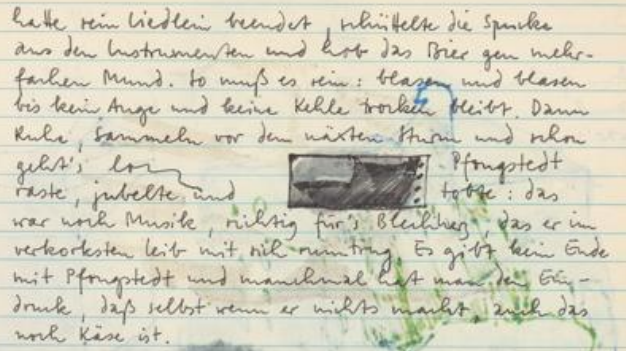 hatte sein Liedlein beendet, schüttelte die Spucke
aus den Instrumenten und hob das Bier gen mehr-
fachen Mund. So muß es sein: blasen und blasen
bis kein Auge und keine Kehle trocken bleibt. Dann
Ruhe, Sammeln vor dem näxten Sturm und schon
geht's los Pfongstedt
raste, jubelte, und tobte: das
war noch Musik, richtig für's Blechherz, das er im
verkorksten Leib mit sich rumtrug. Es gibt kein Ende
mit Pfongstedt und manchmal hat man den Ein-
druck, daß selbst wenn er nichts macht, auch das
noch Käse ist.